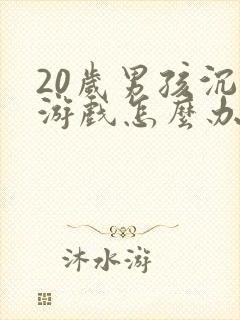 20歲男孩沉
游戲怎麼办
沐水游